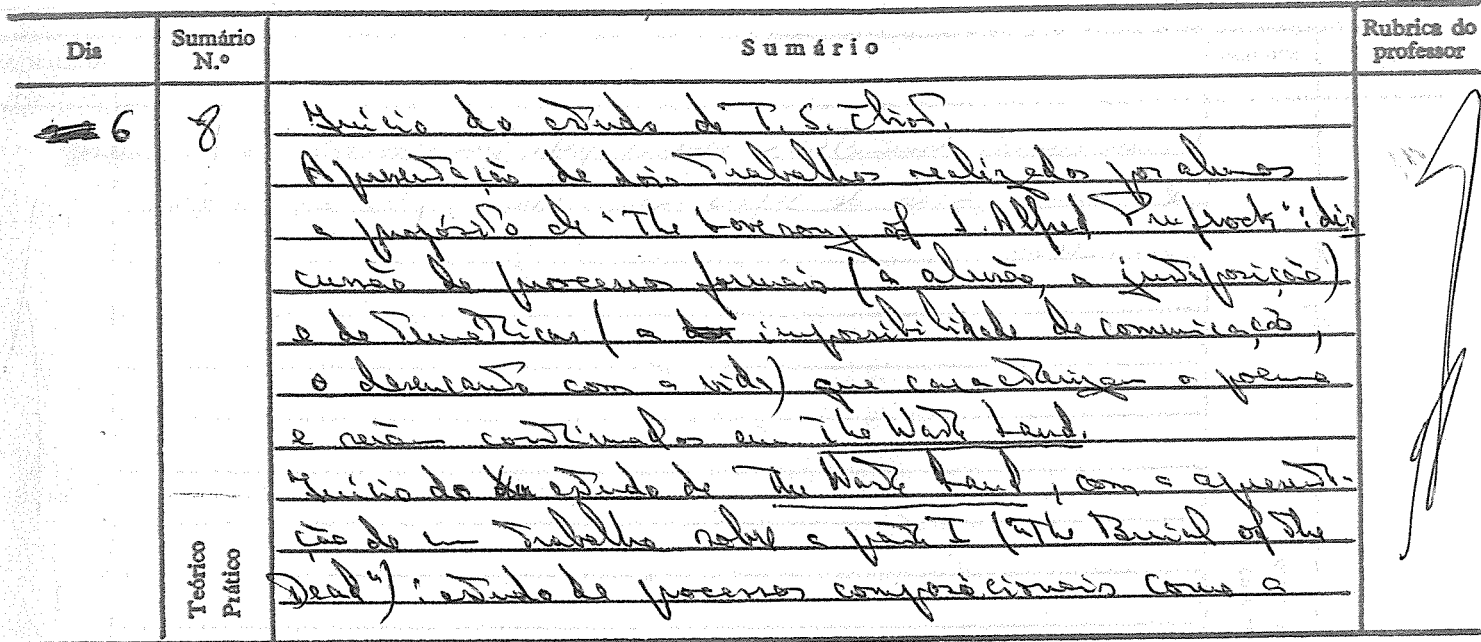 Dia Sumário N.º Sumário Rubrica do professor
6 8 Início do estudo de T. S. Eliot.
Apresentação de dois trabalhos realizados por alunos
a propósito de "The Love song of J. Alfred Prufrock": dis
cussão de processos formais (a alusão, a justaposição)
e de temáticas (a impossibilidade de comunicação,
o desencanto com a vida) que caracterizam o poema
e serão continuados em The Waste Land.
Início do estudo de The Waste Land, com a apresenta-
ção de um trabalho sobre a parte I ("The Burial of the
Dead"): estudo de processos composicionais como a
Teórico
Prático